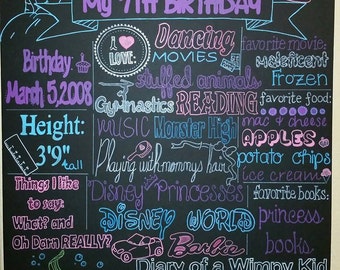 My 7TH BIRTHDAY
Birthday:
March 5, 2008
Height:
3'9"
tall
Things I like
to say:
What? and
Oh Darn REALLY?
I ♥
LOVE:
Dancing
MOVIES
stuffed animals
Gymnastics READING
MUSIC Monster High
Playing with mommys hair
Disney Princesses
DISNEY WORLD
Barbie
favorite movie:
maleficent
Frozen
favorite food:
mac & cheese
APPLES
potato chips
ice cream
favorite books:
princess
books
Diary of a Wimpy Kid